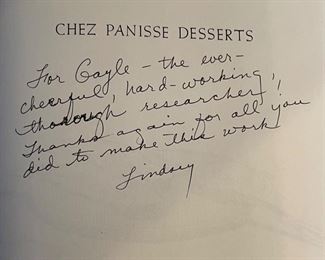 CHEZ PANISSE DESSERTS
For Gayle – the ever-
cheerful, hard-working,
thorough researcher!
Thanks again for all you
did to make this work
Lindsey